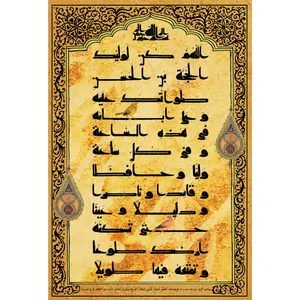 اللهم كن لوليك
الحجة بن الحسن
صلواتك عليه
و على آبائه
في هذه الساعة
و في كل ساعة
وليا و حافظا
و قائدا و ناصرا
و دليلا و عينا
حتى تسكنه
ارضك طوعا
و تمتعه فيها طويلا